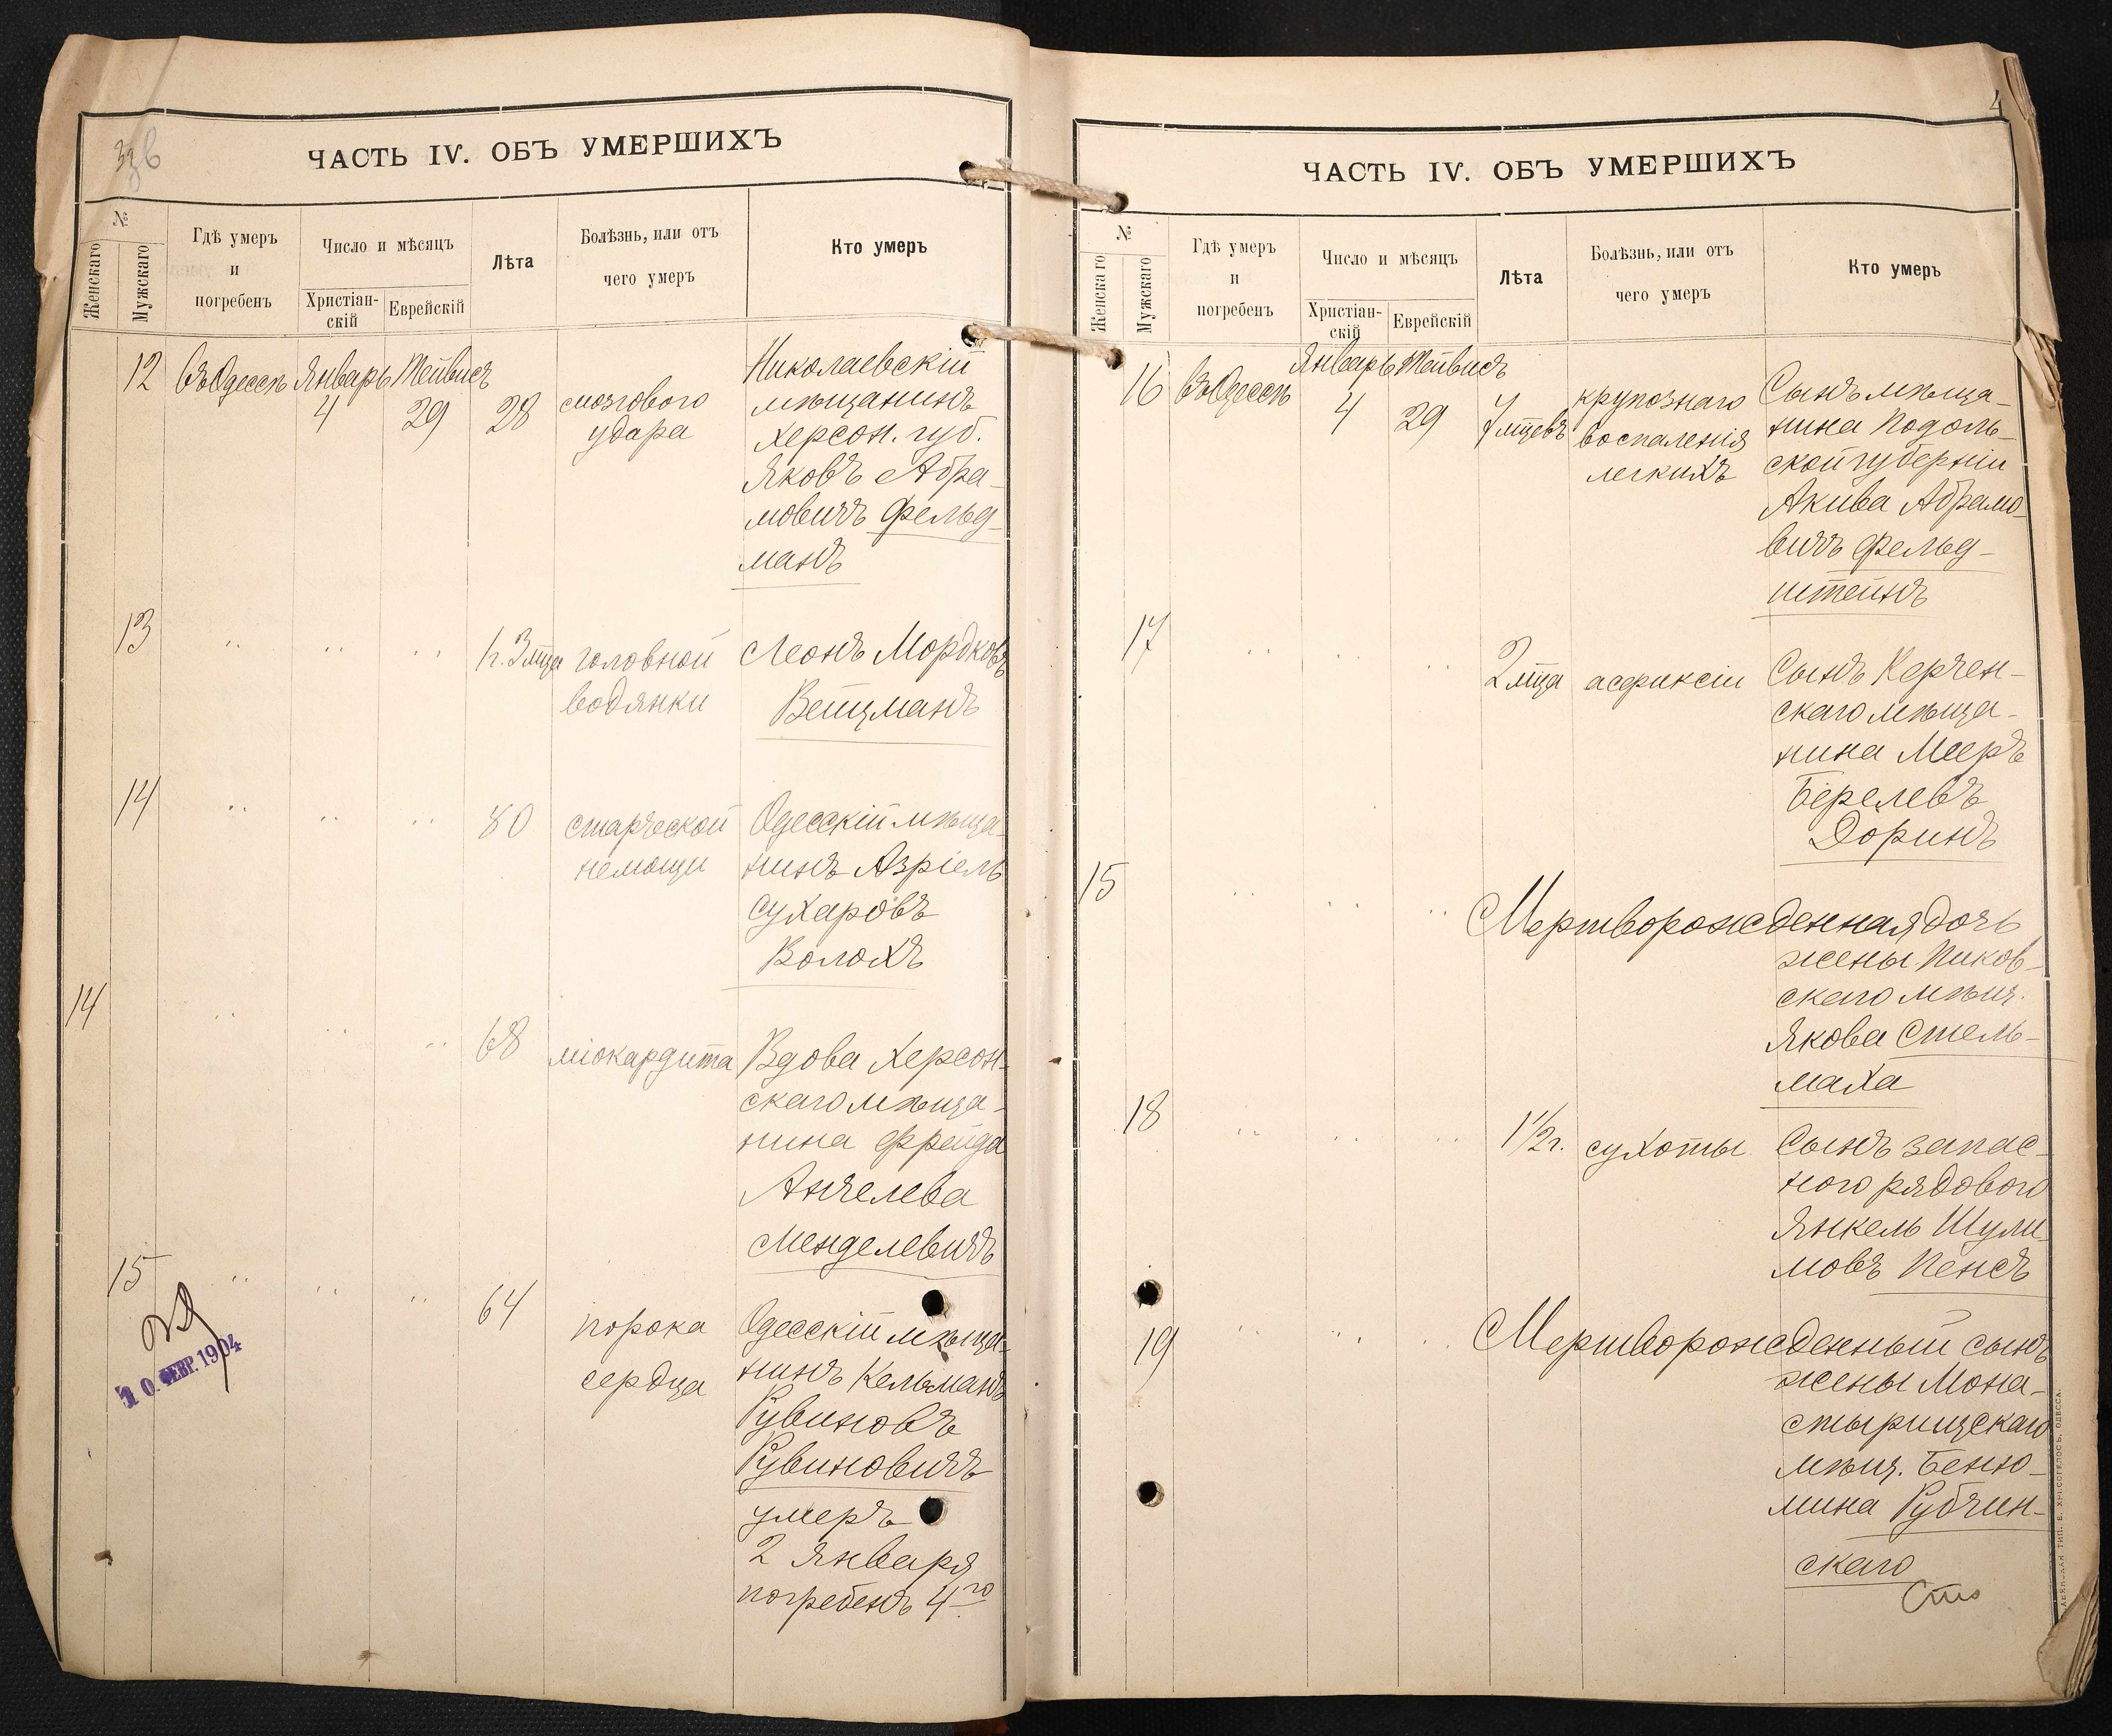 ЧАСТЬ IV. ОБЪ УМЕРШИХЪ
№
Женскаго
Мужскаго
Гдѣ умеръ
и
погребенъ
Число и мѣсяцъ
Христіан-
скій
Еврейскій
Лѣта
Болѣзнь, или отъ
чего умеръ
Кто умеръ
12 въ Одессѣ Январь Тейвисъ Николаевскій
4 29 28 мозгового мѣщанинъ
удара Херсон. губ.
Яковъ Абра-
мовичъ Фельд-
манъ
13 " " " 1 г. 3 мѣца головной Леонъ Мордковъ
водянки Вейцманъ
14 " " " 80 старческой Одесскій мѣща-
немощи нинъ Азріель
Сухаровъ
Волохъ
14 " " " 68 міокардита Вдова Херсон-
скаго мѣща-
нина Фрейда
Анчелева
Менделевичъ
15 " " " 64 порока Одесскій мѣща-
сердца нинъ Кельманъ
Рувиновъ
Рувиновичъ
умеръ
2 Января
погребенъ 4го
10 ФЕВР. 1904
4
ЧАСТЬ IV. ОБЪ УМЕРШИХЪ
№
Женскаго
Мужскаго
Гдѣ умеръ
и
погребенъ
Число и мѣсяцъ
Христіан-
скій
Еврейскій
Лѣта
Болѣзнь, или отъ
чего умеръ
Кто умеръ
16 въ Одессѣ Январь Тейвисъ крупознаго Сынъ мѣща-
4 29 7 мѣцевъ воспаленія нина Подоль-
легкихъ ской губерніи
Акива Абрамо-
вичъ Фельд-
штейнъ
17 " " " 2 мѣца асфиксіи Сынъ Керчен-
скаго мѣща-
нина Мееръ
Берелевъ
Доринъ
15 " " " Мертворожденная дочь
жены Пиков-
скаго мѣщ.
Якова Стель-
маха
18 " " " 1½ г. сухоты Сынъ запас-
ного рядового
Янкель Шули-
мовъ Пенсъ
19 " " " Мертворожденный сынъ
жены Мона-
стырищскаго
мѣщ. Беню-
мина Рубчин-
скаго